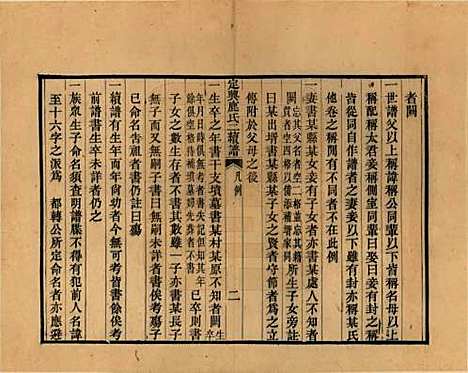 者闕
一世譜父以上稱諱稱公同輩以下皆稱名母以上
稱配稱太君妾稱側室同輩曰娶曰妾有封者稱封
皆從同自作譜者之妻妾以下雖有封亦稱某氏
他卷之稱有不同者不在此例
一妻書某縣某女妾有子女者亦書某人不知者闕
所生子女旁註
曰某出壻書某縣某子女之賢者守節者爲之立
傳附於父母之後
定興鹿氏二續譜
凡例
二
一生卒之年書干支墳墓書某村某原不知者闕
子女之數生存者不書其數雖一子亦書某長子
無子而又無嗣未詳者書俟考殤子
已命名告廟者書仍註曰殤
一續譜有生年而年何今無可考皆書俟考餘俟
前譜書生卒未詳者仍之
一族衆生子命名須查明譜牒不得有犯前人名諱
至十六字之派爲 都轉公所定命名者亦應避